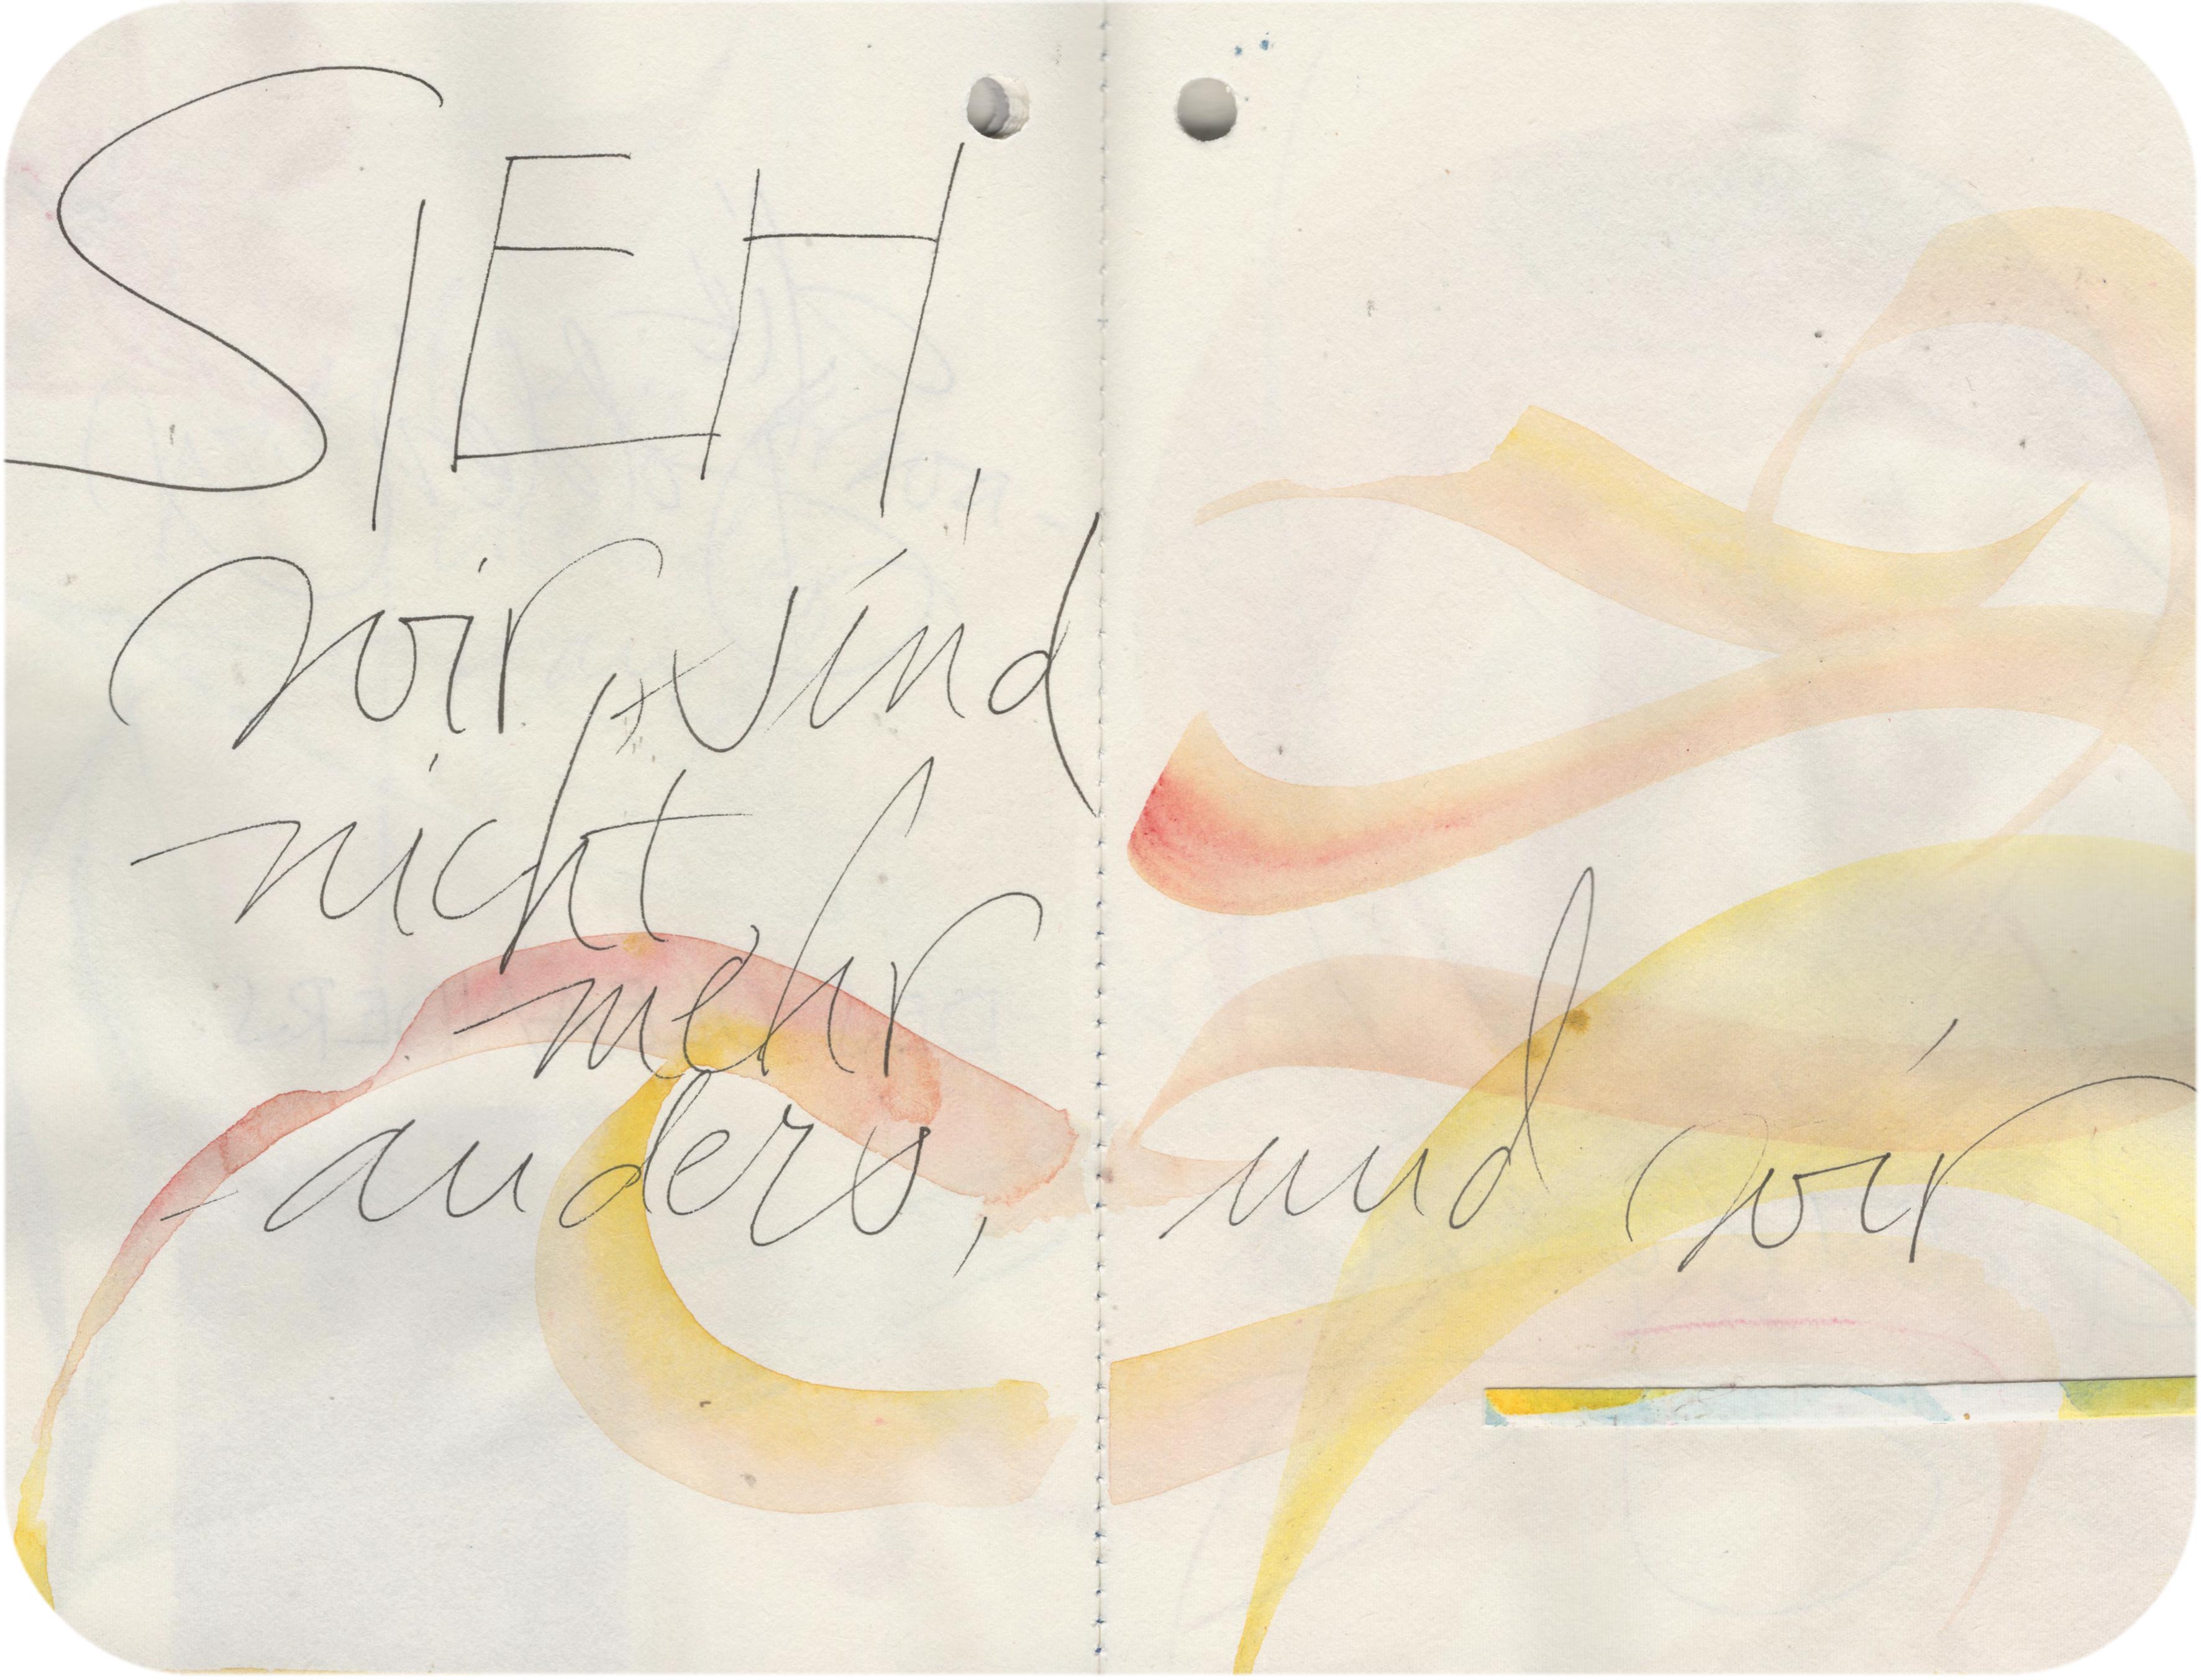 SIEH,
wir sind
nicht
mehr
anders,
und wir